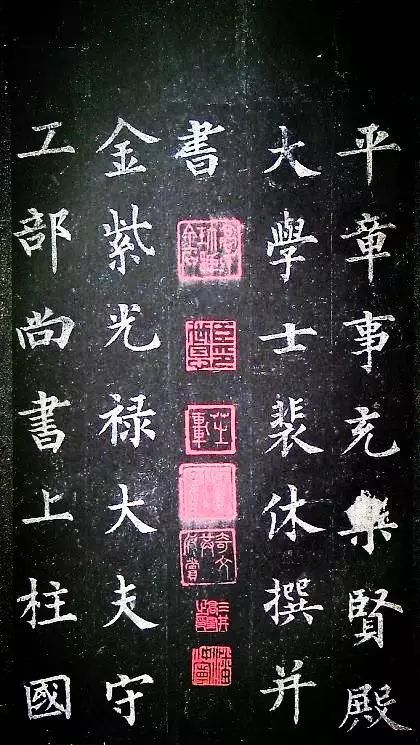 平章事充集賢殿
大學士裴休撰并
書
金紫光禄大夫守
工部尚書上柱國